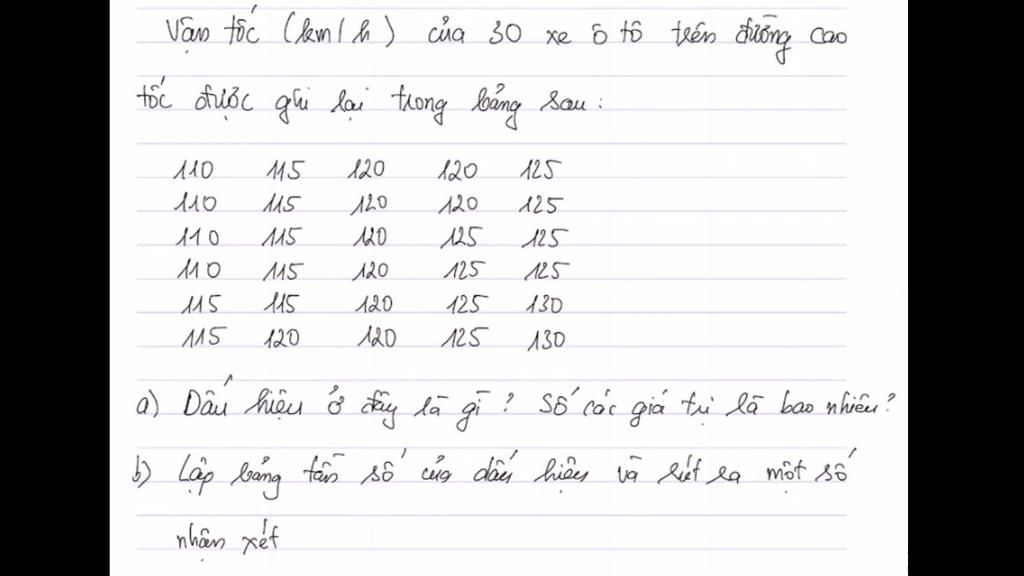 Vận tốc (km/h) của 30 xe ô tô trên đường cao
tốc được ghi lại trong bảng sau:
110 115 120 120 125
110 115 120 120 125
110 115 120 125 125
110 115 120 125 125
115 115 120 125 130
115 120 120 125 130
a) Dấu hiệu ở đây là gì? Số các giá trị là bao nhiêu?
b) Lập bảng tần số của dấu hiệu và rút ra một số
nhận xét